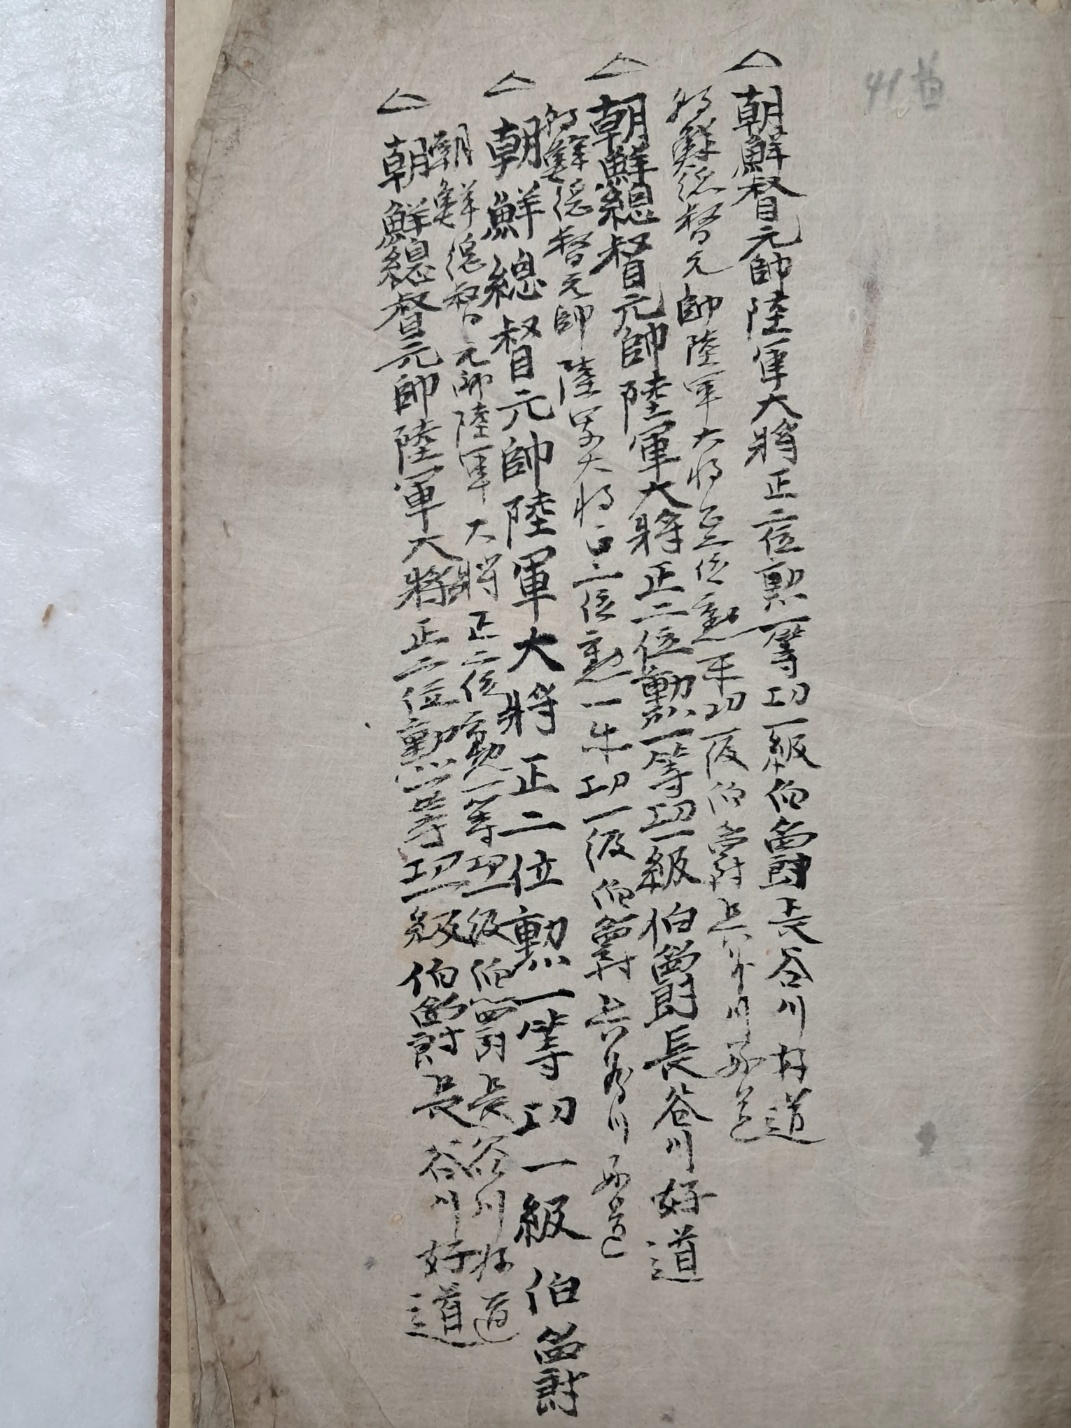 41
△朝鮮督元帥陸軍大將正二位勲一等功一級伯爵長谷川好道
朝鮮總督元帥陸軍大将正二位勲一等功一級伯爵長谷川好道
△朝鮮總督元帥陸軍大將正二位勲一等功一級伯爵長谷川好道
朝鮮總督元帥陸軍大将正二位勲一等功一級伯爵長谷川好道
△朝鮮總督元帥陸軍大將正二位勲一等功一級伯爵
朝鮮總督元帥陸軍大將正二位勲一等功一級伯爵長谷川好道
△朝鮮總督元帥陸軍大將正二位勲一等功一級伯爵長谷川好道